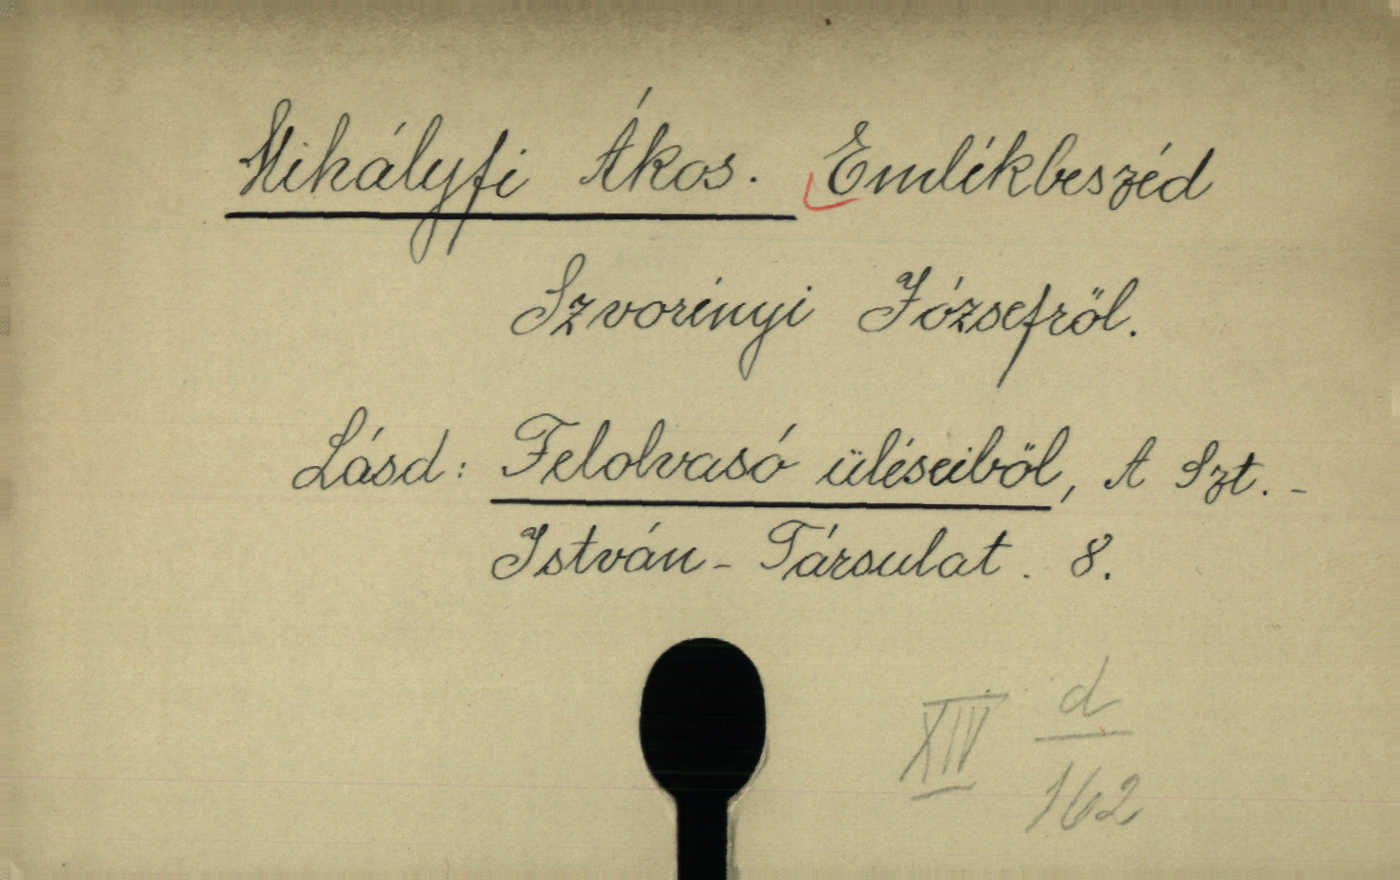 Mihályfi Ákos. Emlékbeszéd
Szvorényi Józsefről.
Lásd: Felolvasó üléseiből, A Szt. -
István - Társulat. 8.
XIV d/162